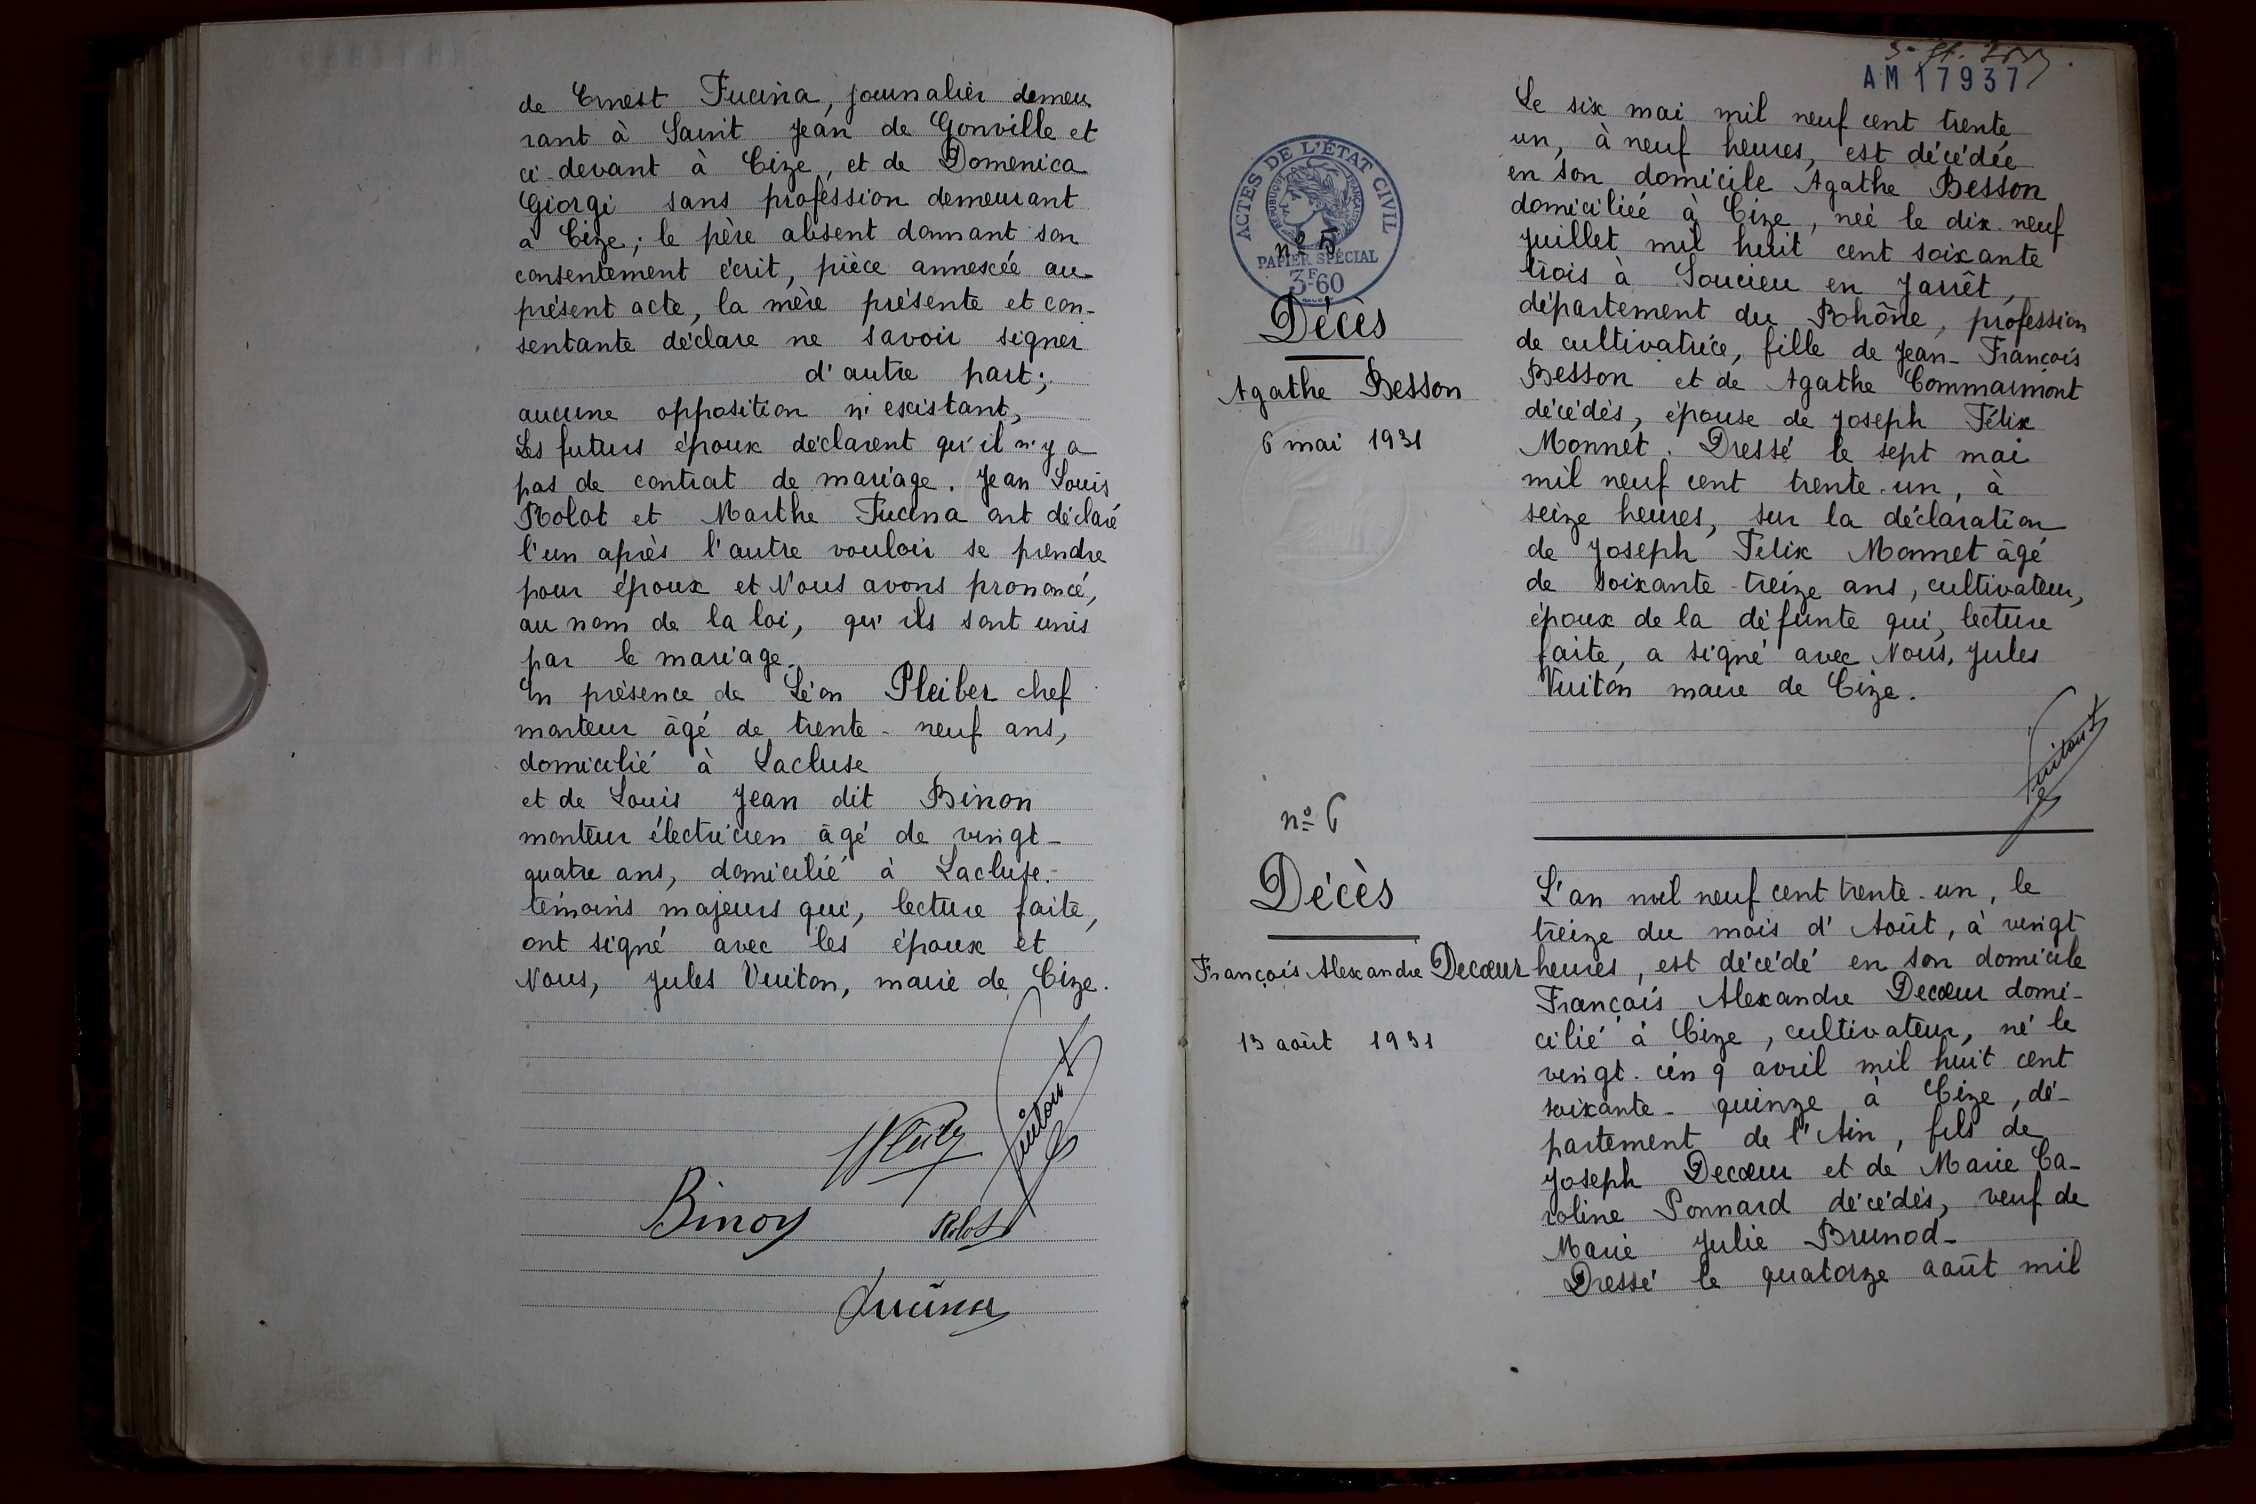 de Ernest Fucina, journalier demeu
rant à Saint Jean de Gonville et
ci-devant à Cize, et de Domenica
Giorgi sans profession demeurant
à Cize; le père absent donnant son
consentement écrit, pièce annexée au
présent acte, la mère présente et con-
sentante déclare ne savoir signer
d'autre part;
aucune opposition n'existant,
Les futurs époux déclarent qu'il n'y a
pas de contrat de mariage. Jean Louis
Rolot et Marthe Fucina ont déclaré
l'un après l'autre vouloir se prendre
pour époux et Nous avons prononcé,
au nom de la loi, qu'ils sont unis
par le mariage.
En présence de Léon Pleiber chef
monteur âgé de trente-neuf ans,
domicilié à Lacluse
et de Louis Jean dit Binon
monteur électricien âgé de vingt-
quatre ans, domicilié à Lacluse.
témoins majeurs qui, lecture faite,
ont signé avec les époux et
Nous, Jules Vuiton, maire de Cize.
Vuiton
Binon
Rolot
Fucina
AM17937
ACTES DE L'ÉTAT CIVIL
RÉPUBLIQUE FRANÇAISE
n° 5
PAPIER SPÉCIAL
3F60
Décès
Agathe Besson
6 mai 1931
Le six mai mil neuf cent trente
un, à neuf heures, est décédée
en son domicile Agathe Besson
domiciliée à Cize, née le dix-neuf
juillet mil huit cent soixante
trois à Soucieu en Jarrêt,
département du Rhône, profession
de cultivatrice, fille de Jean-François
Besson et de Agathe Commarmont
décédés, épouse de Joseph Félix
Monnet. Dressé le sept mai
mil neuf cent trente-un, à
seize heures, sur la déclaration
de Joseph Félix Monnet âgé
de soixante-treize ans, cultivateur,
époux de la défunte qui, lecture
faite, a signé avec Nous, Jules
Vuiton maire de Cize.
Vuiton
n° 6
Décès
François Alexandre Decœur
13 août 1931
L'an mil neuf cent trente-un, le
treize du mois d'Août, à vingt
heures, est décédé en son domicile
François Alexandre Decœur domi-
cilié à Cize, cultivateur, né le
vingt-cinq avril mil huit cent
soixante-quinze à Cize, dé-
partement de l'Ain, fils de
Joseph Decœur et de Marie Ca-
roline Ponnard décédés, veuf de
Marie Julie Brunod-
Dressé le quatorze août mil